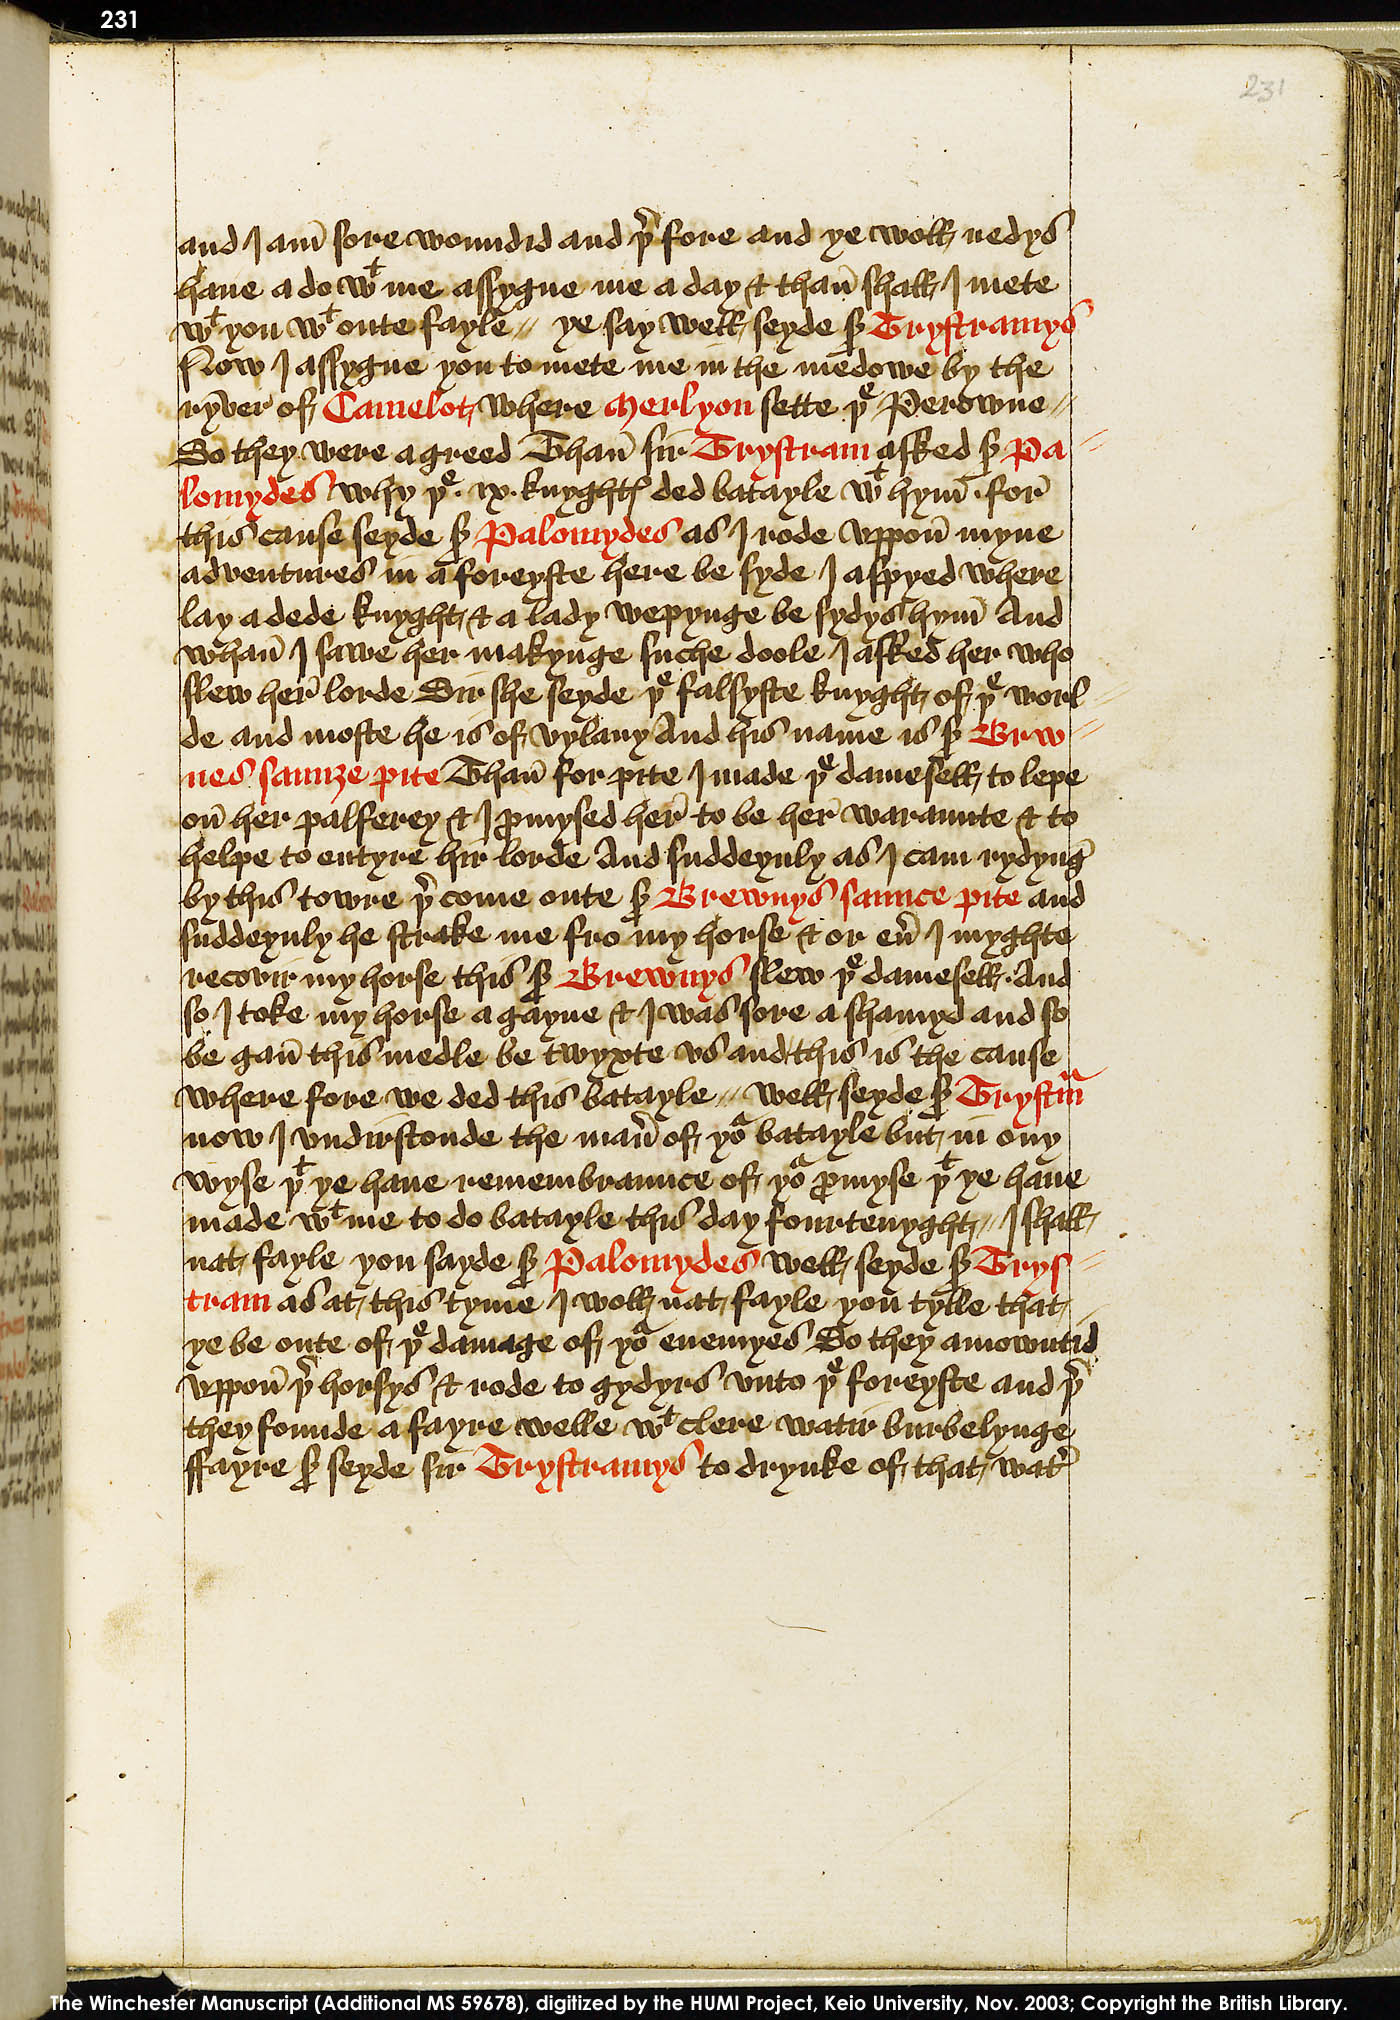 231
231
and I am̄ sore woundid and þ̄ fore and ye woll nedys
haue a do wᵗ me assygne me a day & than̄ shall I mete
wᵗ you wᵗ oute fayle // ye say well seyde sꝛ Trystramys
Now I assygne you to mete me in the medowe by the
ryver of Camelot where Merlyon sette þᵉ Perowne //
So they were agreed Than̄ sir Trystram asked sꝛ Pa //
lomydes why þᵉ · ix · knyghtꝭ ded batayle wᵗ hym̄ · for̄
this cause seyde sꝛ Palomydes as I rode vppon̄ myne
adventures in a foreyste here be syde I aspyed where
lay a dede knyght & a lady wepynge be sydys hym̄ And
whan̄ I sawe her makynge suche doole I asked her who
slew her̄ lorde Sir she seyde þᵉ falsyste knyght of þᵉ worl //
de and moste he is of vylany And his name is sꝛ Brw //
nes saunze pite Than̄ for pite I made þᵉ damesell to lepe
on̄ her palferey & I ꝓmysed her̄ to be her̄ waraunte & to
helpe to entyre hir lorde And suddeynly as I cam rydynḡ
by this towre þ̄ come oute sꝛ Brewnys saunce pite and
suddeynly he strake me fro my horse & or eū I myghte
recovir my horse this sꝛ Brewnys slew þᵉ damesell · And
so I toke my horse a gayne & I was sore a shamyd and so
be gan̄ this medle be twyxte vs and this is the cause
where fore we ded this batayle // well seyde sꝛ Trystrᵃm
now I vndirstonde the man̄ of yoᵘ batayle but in ony
wyse þᵗ ye haue remembraunce of yoᵘ ꝓmyse þᵗ ye haue
made wᵗ me to do batayle this day fourtenyght // I shall
nat fayle you sayde sꝛ Palomydes well seyde sꝛ Trys //
tram as at this tyme I woll nat fayle you tylle that
ye be oute of þᵉ damage of yoᵘ enemyes So they amowntid
vppon̄ þ̄ horsys & rode to gydyrs vnto þᵉ foreyste and þ̄
they founde a fayre welle wᵗ clere watir burbelynge
ffayre sꝛ seyde sir Trystramys to drynke of that wat̄
The Winchester Manuscript (Additional MS 59678), digitized by the HUMI Project, Keio University, Nov. 2003; Copyright the British Library.